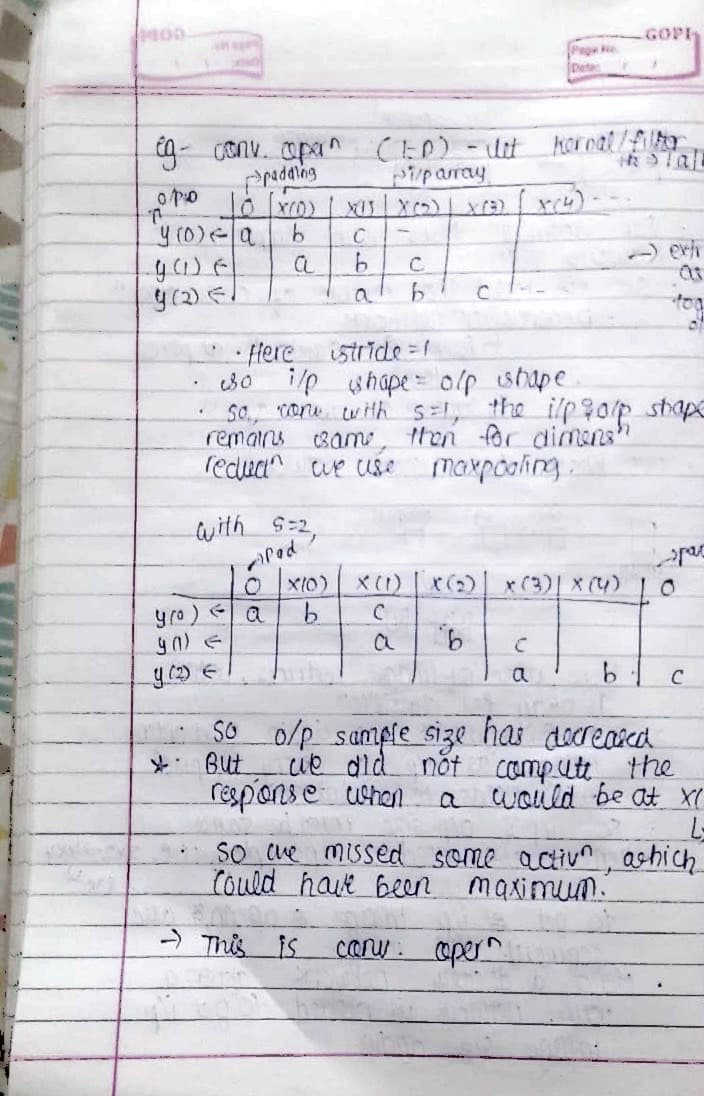 GOPI
Page No.
Date: / /
eg- conv. opern (1-D) - let kernal/filter
→padding →i/p array
o/p
0 | x(0) | x(1) | x(2) | x(3) | x(4) - - -
y(0) ← a b c -
y(1) ← a b c
y(2) ← a b c - -
→ ext
as
tog
· Here stride = 1
· so i/p shape = o/p shape.
· So, conv with s=1, the i/p & o/p shape
remains same, then for dimensn
reducn we use maxpooling.
with s=2,
→pad →pa
0 | x(0) | x(1) | x(2) | x(3) | x(4) | 0
y(0) ← a b c
y(1) ← a b c
y(2) ← a b c
· So o/p sample size has decreased
* · But we did not compute the
response when a would be at x(
· So we missed some activn, which
could have been maximum.
→ This is conv. opern